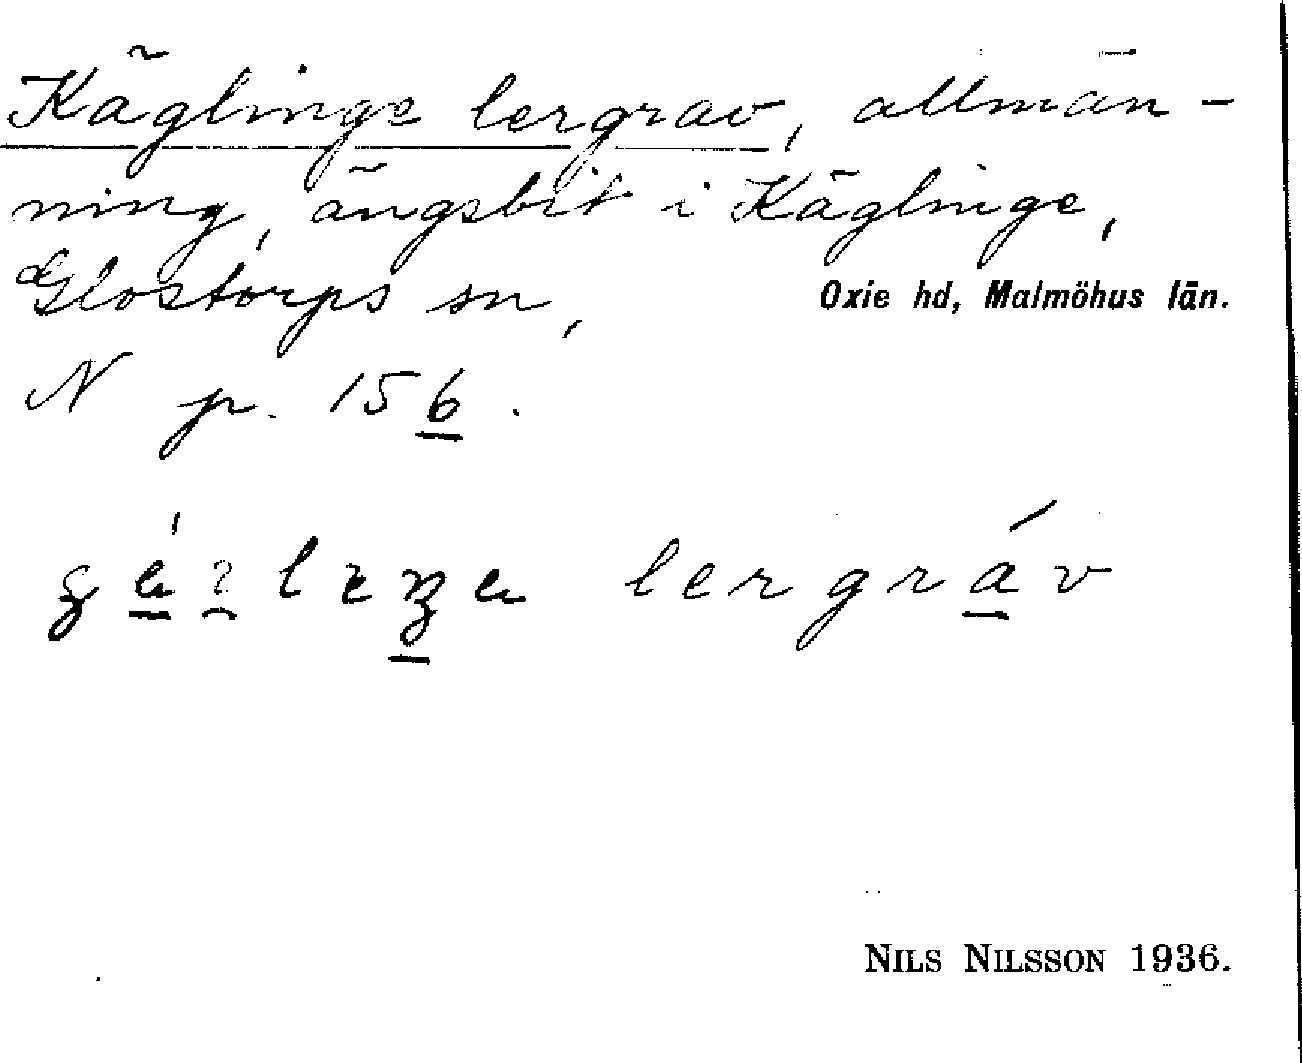 Käglinge lergrav, allmän-
ning, ängsbit i Käglinge,
Glostorps sn, Oxie hd, Malmöhus län.
N p. 156.
lergráv
NILS NILSSON 1936.